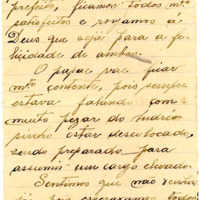 prefeito, ficamos todos mto
satisfeitos e rogamos á
Deus que seja para a fe-
licidade de ambos.
O papae vae ficar
mto contente, pois sempre
estava falando com
muito pezar do
estar deslocado,
sendo preparado para
assumir um cargo elevado.
Sentimos que não
pois esperavamos todos